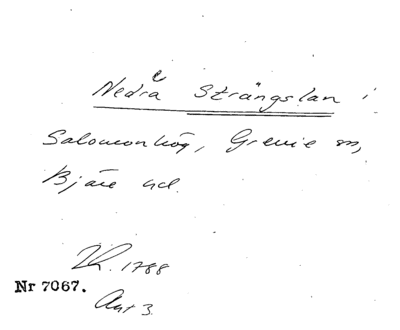 Nedre Strängslan i
Salomonhög, Grevie sn,
Bjäre hd.
1788
Nr 7067.
Ant 3.